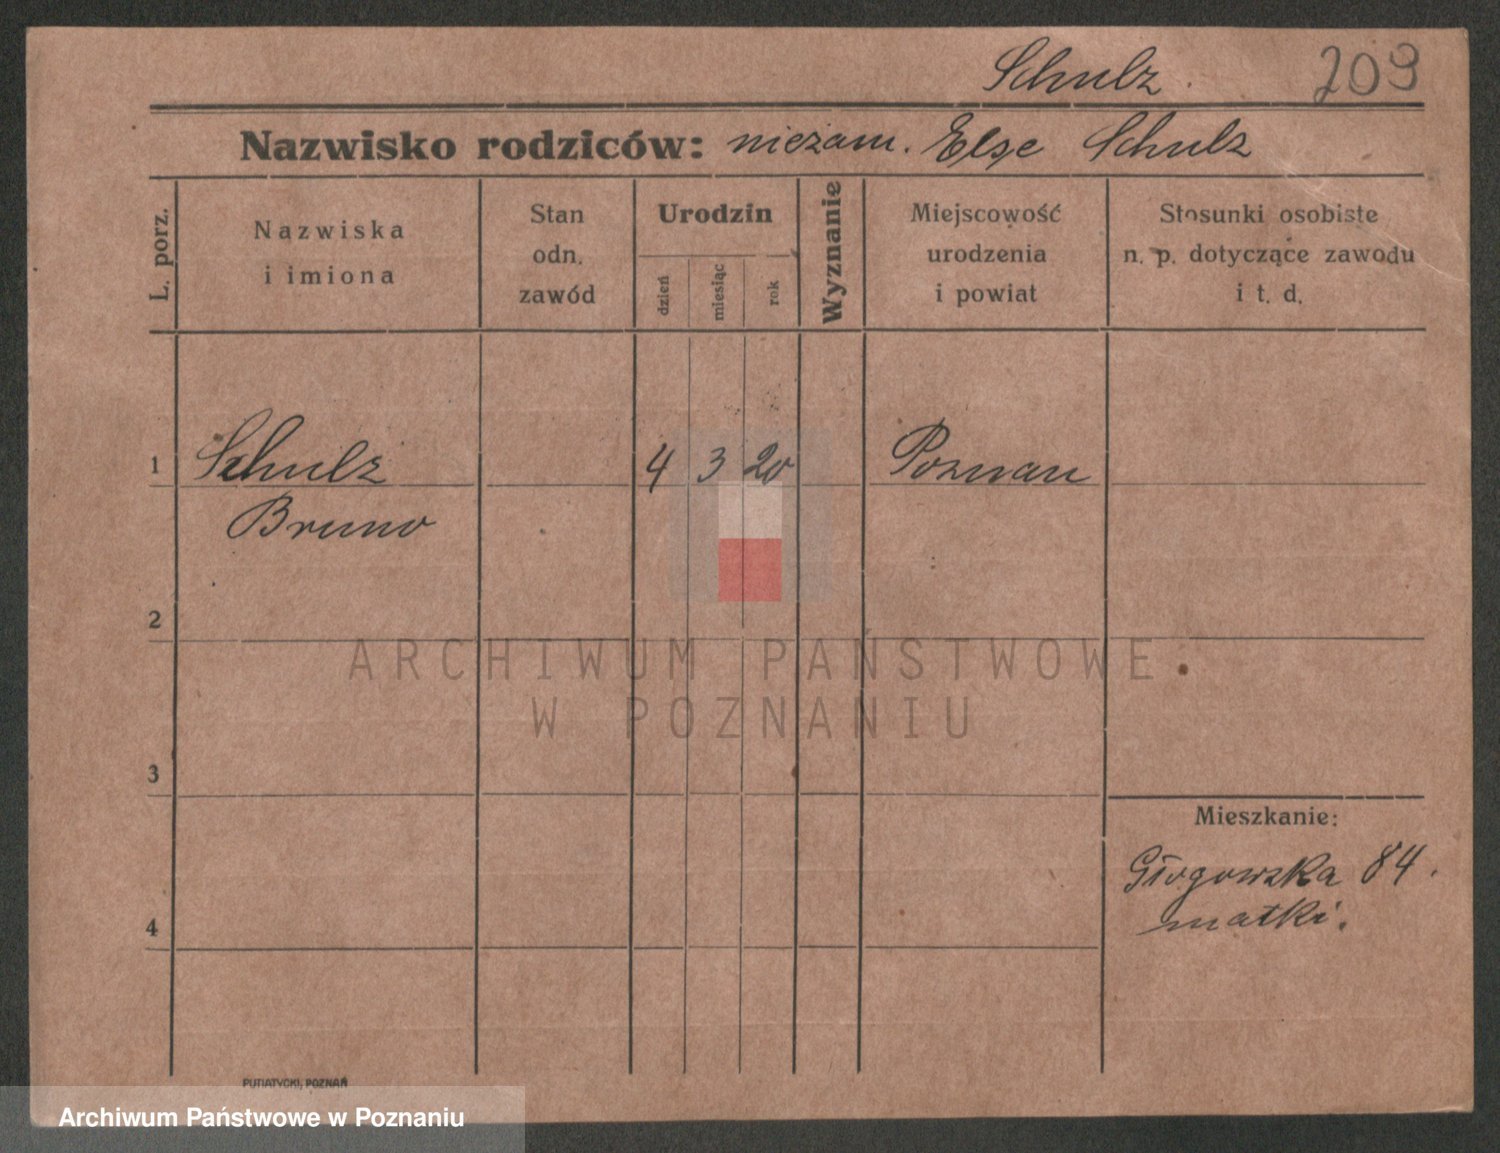 Schulz. 209
Nazwisko rodziców: niezam. Else Schulz
L. porz.
Nazwiska
i imiona
Stan
odn.
zawód
Urodzin
dzień
miesiąc
rok
Wyznanie
Miejscowość
urodzenia
i powiat
Stosunki osobiste
n. p. dotyczące zawodu
i t. d.
1 Schulz 4 3 20 Poznan
Bruno
2
ARCHIWUM PAŃSTWOWE
W POZNANIU
3
Mieszkanie:
Głogowska 84.
matki.
4
PUTIATYCKI, POZNAŃ
Archiwum Państwowe w Poznaniu